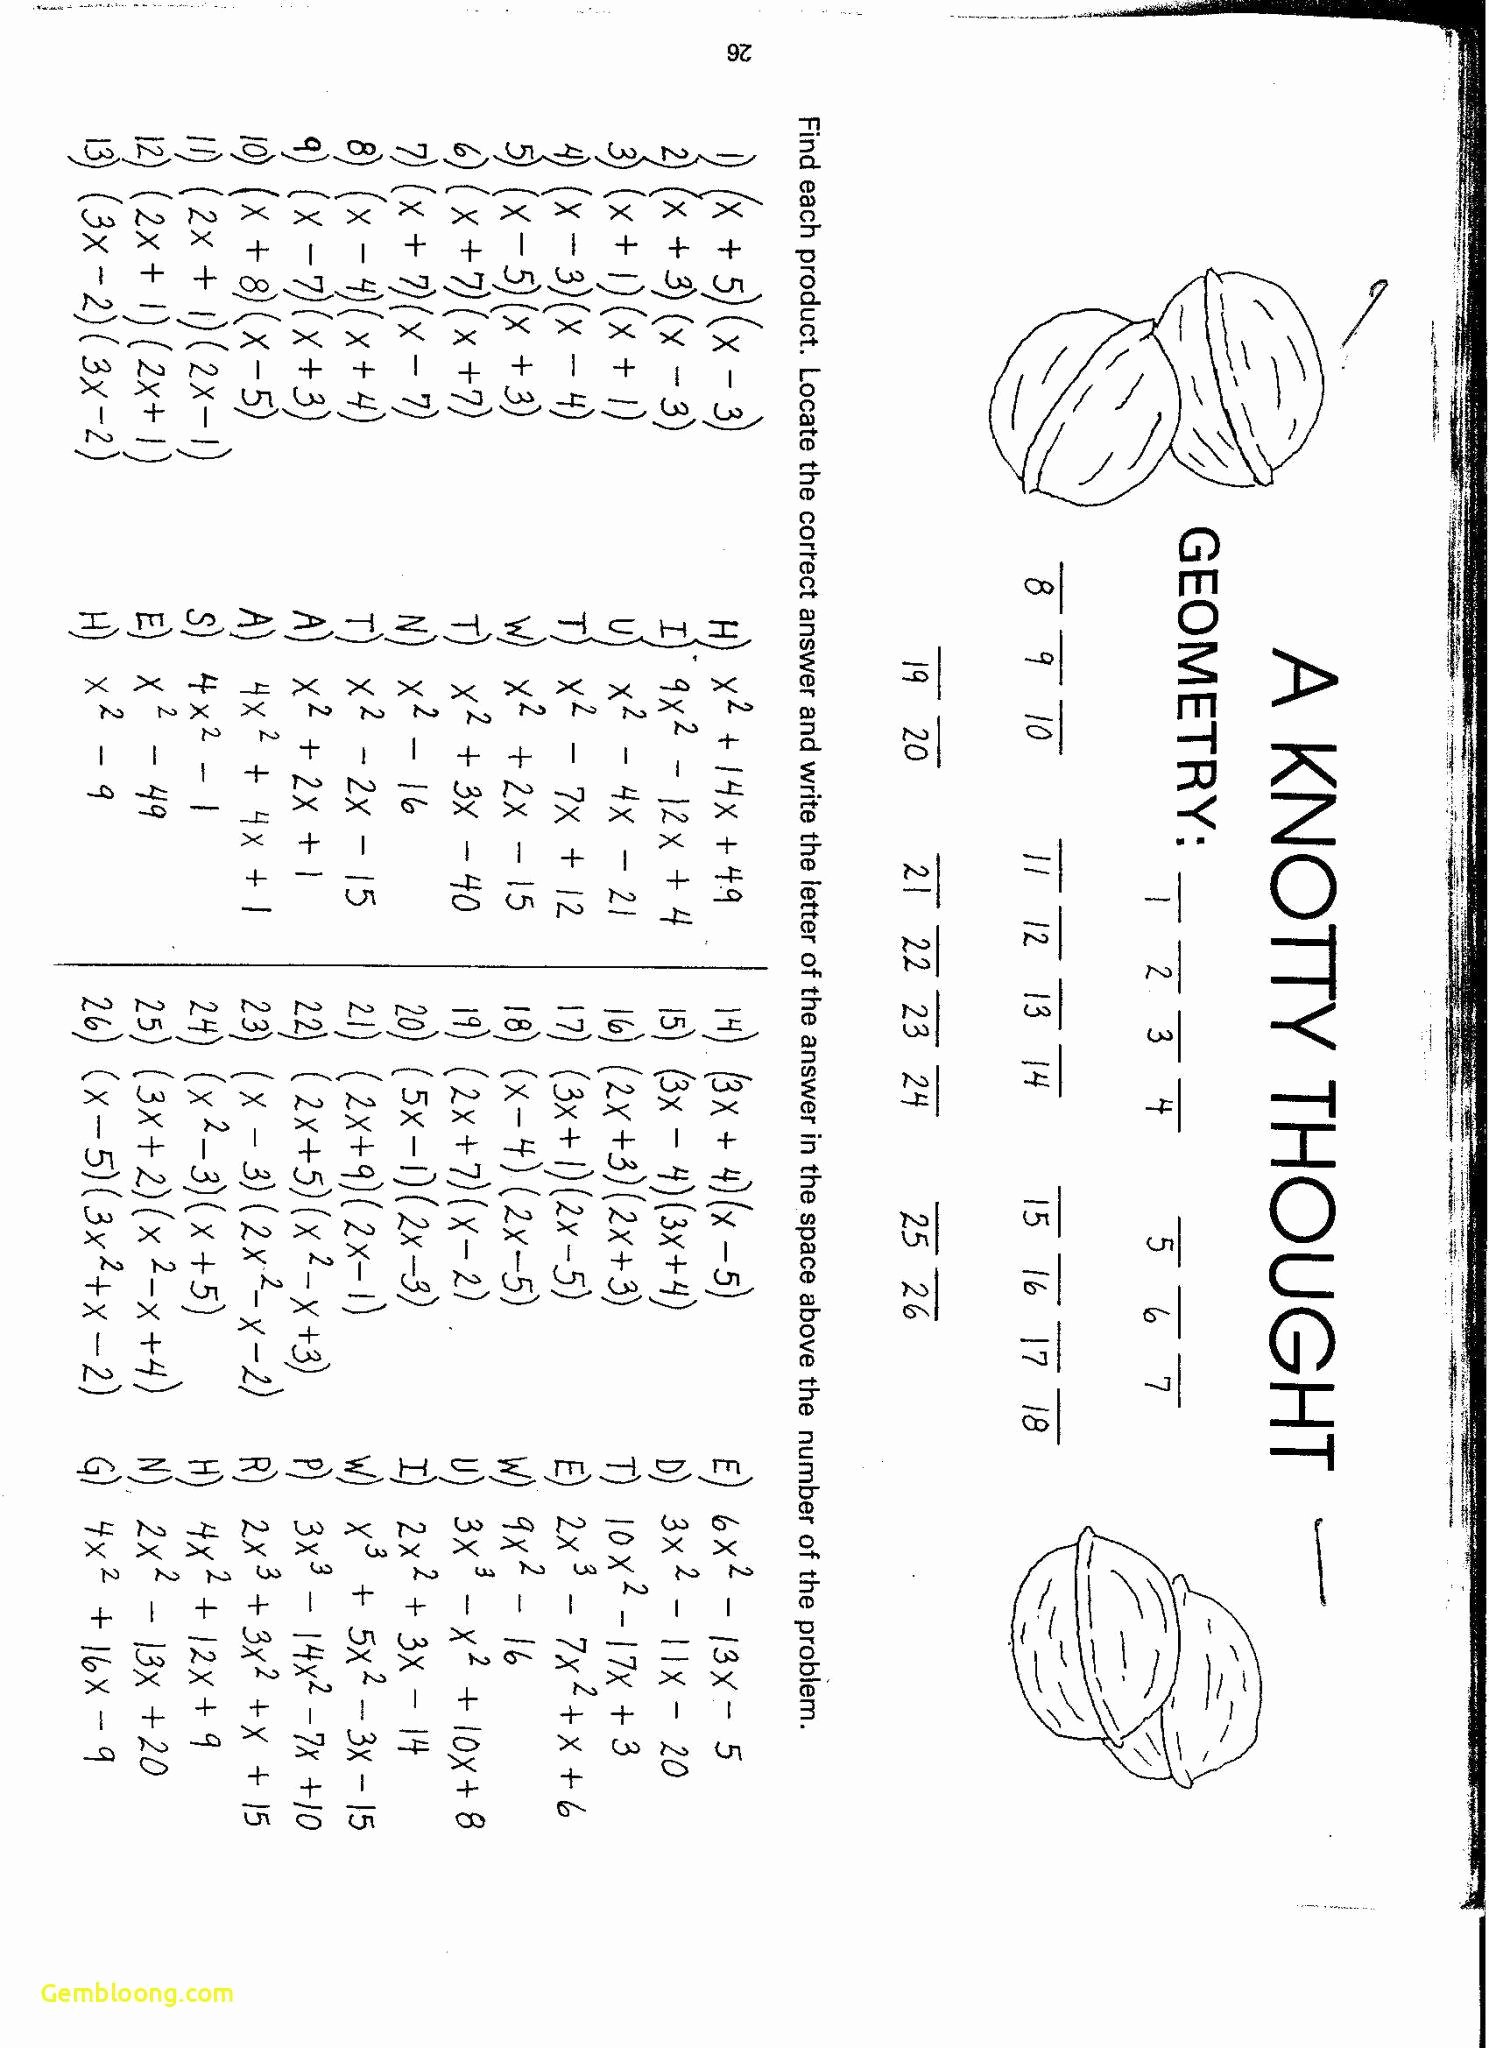 A KNOTTY THOUGHT —
GEOMETRY: 1 2 3 4 5 6 7
8 9 10 11 12 13 14 15 16 17 18
19 20 21 22 23 24 25 26
Find each product. Locate the correct answer and write the letter of the answer in the space above the number of the problem.
1) (x + 5)(x - 3)
2) (x + 3)(x - 3)
3) (x + 1)(x + 1)
4) (x - 3)(x - 4)
5) (x - 5)(x + 3)
6) (x + 7)(x + 7)
7) (x + 7)(x - 7)
8) (x - 4)(x + 4)
9) (x - 7)(x + 3)
10) (x + 8)(x - 5)
11) (2x + 1)(2x - 1)
12) (2x + 1)(2x + 1)
13) (3x - 2)(3x - 2)
H) x² + 14x + 49
I) 9x² - 12x + 4
U) x² - 4x - 21
T) x² - 7x + 12
W) x² + 2x - 15
T) x² + 3x - 40
N) x² - 16
T) x² - 2x - 15
A) x² + 2x + 1
A) 4x² + 4x + 1
S) 4x² - 1
E) x² - 49
H) x² - 9
14) (3x + 4)(x - 5)
15) (3x - 4)(3x + 4)
16) (2x + 3)(2x + 3)
17) (3x + 1)(2x - 5)
18) (x - 4)(2x - 5)
19) (2x + 7)(x - 2)
20) (5x - 1)(2x - 3)
21) (2x + 9)(2x - 1)
22) (2x + 5)(x² - x + 3)
23) (x - 3)(2x² - x - 2)
24) (x² - 3)(x + 5)
25) (3x + 2)(x² - x + 4)
26) (x - 5)(3x² + x - 2)
E) 6x² - 13x - 5
D) 3x² - 11x - 20
T) 10x² - 17x + 3
E) 2x³ - 7x² + x + 6
W) 9x² - 16
U) 3x³ - x² + 10x + 8
I) 2x² + 3x - 14
W) x³ + 5x² - 3x - 15
P) 3x³ - 14x² - 7x + 10
R) 2x³ + 3x² + x + 15
H) 4x² + 12x + 9
N) 2x² - 13x + 20
G) 4x² + 16x - 9
26
Gembloong.com